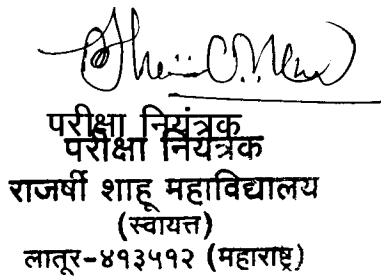 परीक्षा नियंत्रक
परीक्षा नियंत्रक
राजर्षी शाहू महाविद्यालय
(स्वायत्त)
लातूर-४१३५१२ (महाराष्ट्र)